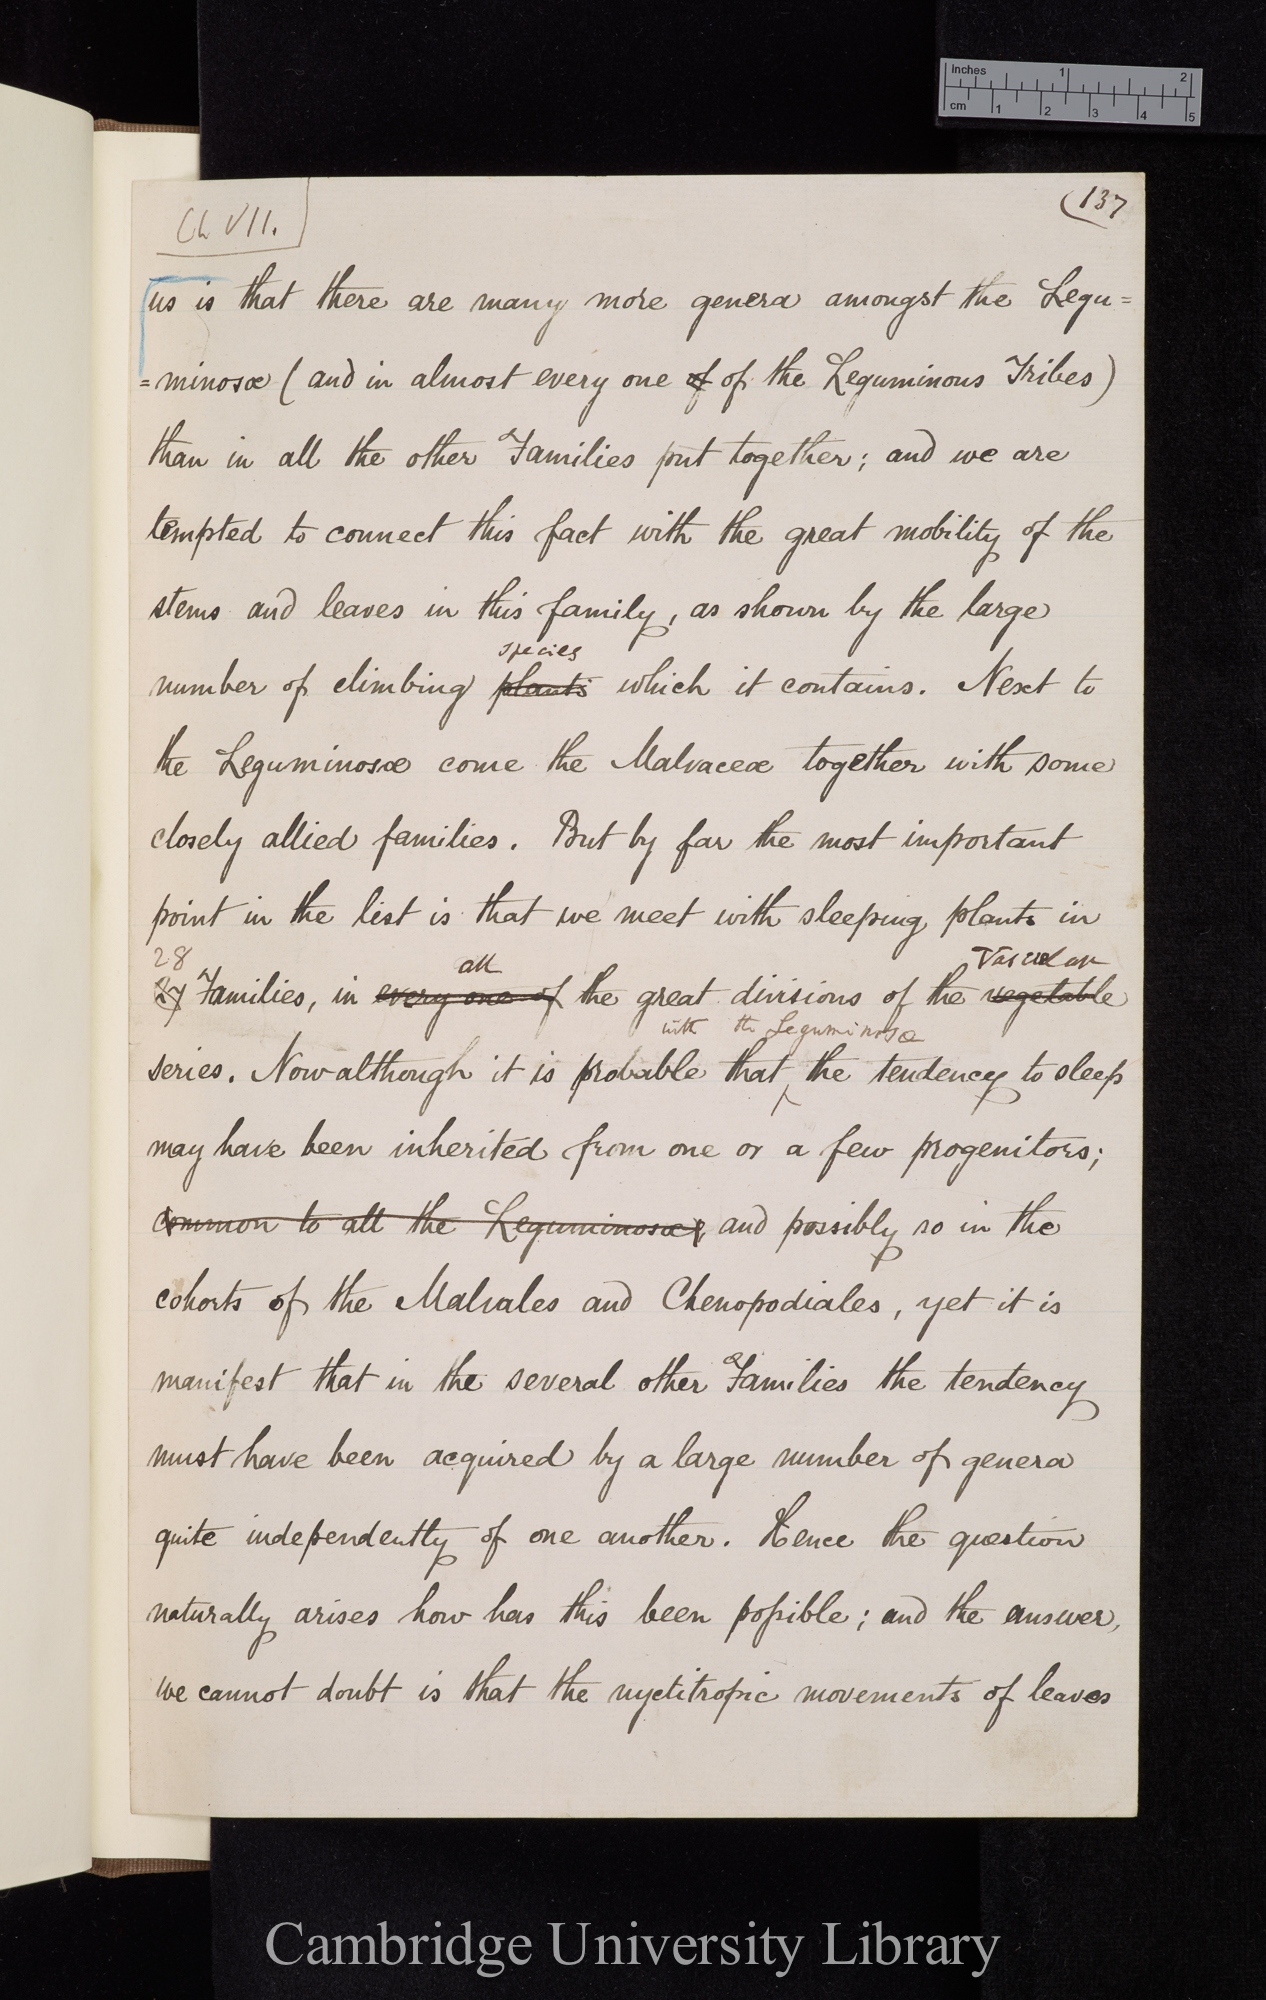 Inches 1 2
cm 1 2 3 4 5
Ch VII.
(137
us is that there are many more genera amongst the Legu=
=minosæ (and in almost every one of of the Leguminous Tribes)
than in all the other Families put together; and we are
tempted to connect this fact with the great mobility of the
stems and leaves in this family, as shown by the large
species
number of climbing plants which it contains. Next to
the Leguminosæ come the Malvaceæ together with some
closely allied families. But by far the most important
point in the list is that we meet with sleeping plants in
28 all Vascular
27 Families, in every one of the great divisions of the vegetable
with the Leguminosæ
series. Now although it is probable that ‸ the tendency to sleep
may have been inherited from one or a few progenitors;
common to all the Leguminosæ; and possibly so in the
cohorts of the Malvales and Chenopodiales, yet it is
manifest that in the several other Families the tendency
must have been acquired by a large number of genera
quite independently of one another. Hence the question
naturally arises how has this been possible; and the answer,
we cannot doubt is that the nyctitropic movements of leaves
Cambridge University Library